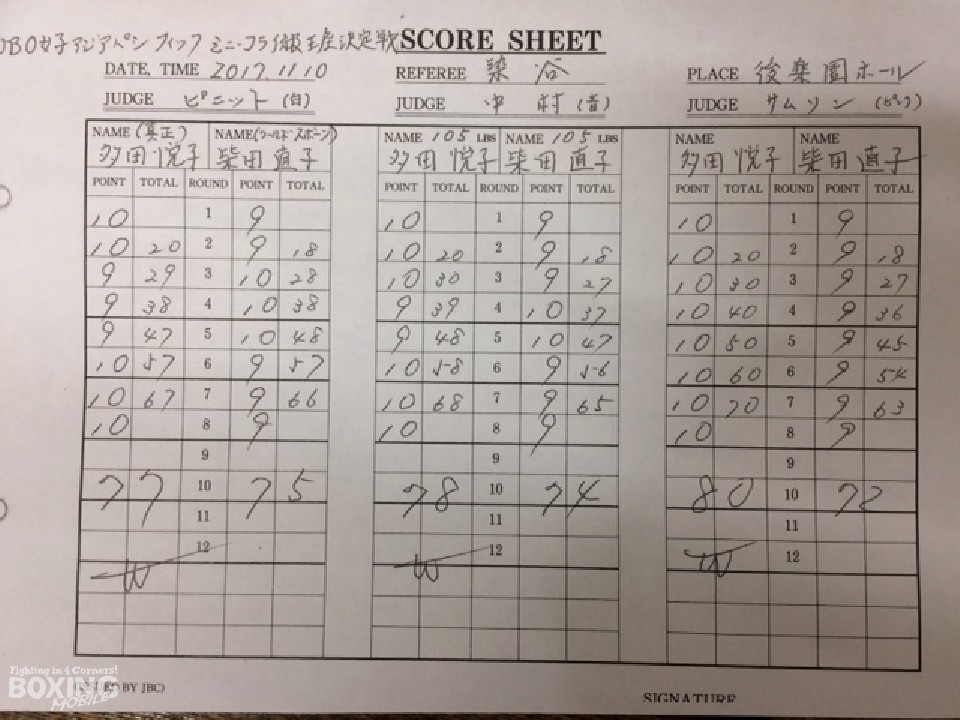 女子アジアパシフィック ミニ・フライ級王座決定戦 SCORE SHEET
DATE, TIME 2017.11.10 REFEREE 染谷 PLACE 後楽園ホール
JUDGE ピニット(白) JUDGE 中村(青) JUDGE サムソン(ピンク)
NAME (真正) NAME (ワールドスポーツ) NAME 105 LBS NAME 105 LBS NAME NAME
多田悦子 柴田直子 多田悦子 柴田直子 多田悦子 柴田直子
POINT TOTAL ROUND POINT TOTAL POINT TOTAL ROUND POINT TOTAL POINT TOTAL ROUND POINT TOTAL
10 1 9 10 1 9 10 1 9
10 20 2 9 18 10 20 2 9 18 10 20 2 9 18
9 29 3 10 28 10 30 3 9 27 10 30 3 9 27
9 38 4 10 38 9 39 4 10 37 10 40 4 9 36
9 47 5 10 48 9 48 5 10 47 10 50 5 9 45
10 57 6 9 57 10 58 6 9 56 10 60 6 9 54
10 67 7 9 66 10 68 7 9 65 10 70 7 9 63
10 8 9 10 8 9 10 8 9
9 9 9
77 10 75 78 10 74 80 10 72
11 11 11
12 12 12
W W W
Fighting in 4 Corners!
BOXING
MOBILE
BY JBC)
SIGNATURE